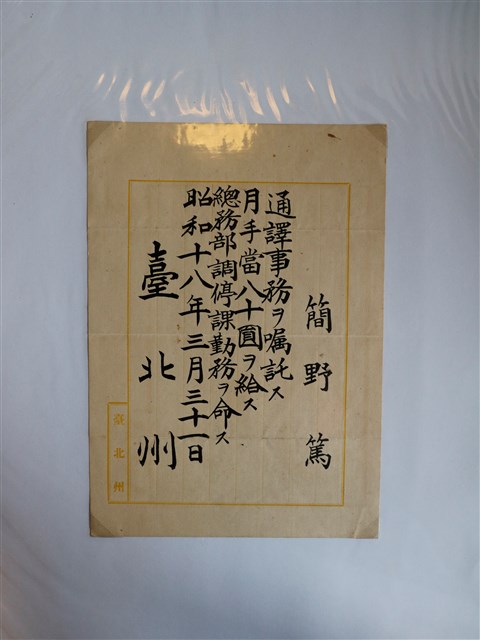 簡野篤
通譯事務ヲ嘱託ス
月手當八十圓ヲ給ス
總務部調停課勤務ヲ命ス
昭和十八年三月三十一日
臺北州
臺北州